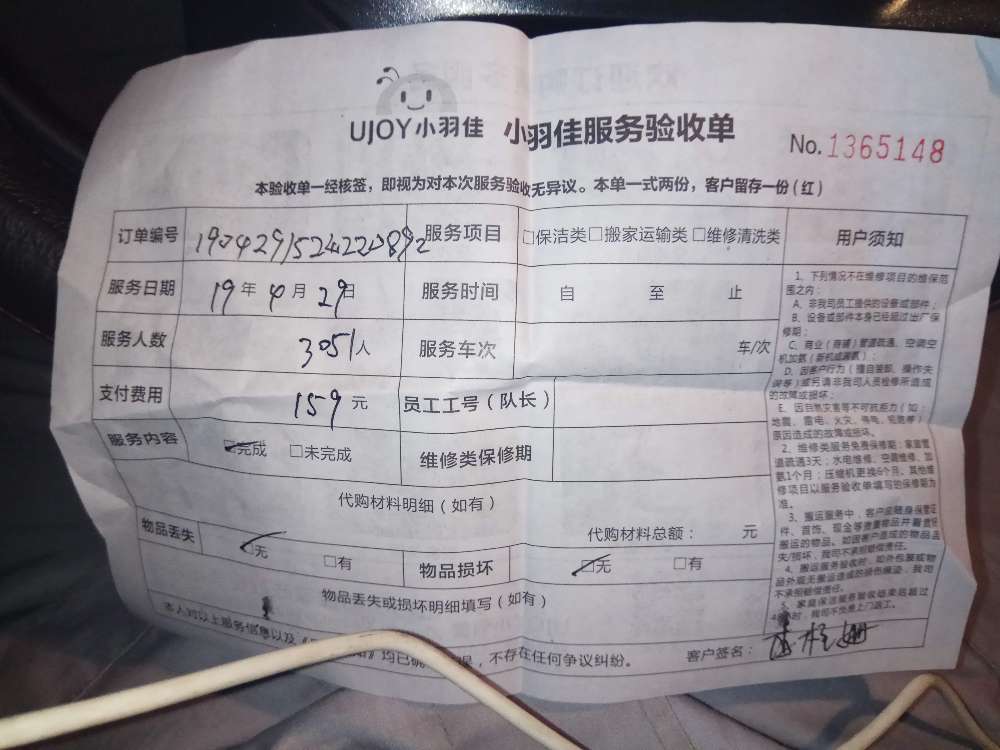 UJOY小羽佳 小羽佳服务验收单
No.1365148
本验收单一经核签，即视为对本次服务验收无异议。本单一式两份，客户留存一份(红)
订单编号 服务项目 □保洁类□搬家运输类□维修清洗类 用户须知
服务日期 19年4月29日 服务时间 自 至 止
服务人数 3051人 服务车次 车/次
支付费用 159元 员工工号（队长）
服务内容 ☑完成 □未完成 维修类保修期
代购材料明细（如有）
代购材料总额： 元
物品丢失 ☑无 □有 物品损坏 ☑无 □有
物品丢失或损坏明细填写（如有）
本人对以上服务信息以及
，不存在任何争议纠纷。 客户签名：
1、下列情况不在维修项目的维保范
围之内：
A、非我司员工提供的设备或部件；
B、设备或部件本身已经超过出厂保
修期；
C、商业（商铺）管道疏通、空调空
机加氨（新机或漏氨）；
D、因客户行为（擅自装卸、操作失
误等）或另请非我司人员检修所造成
的故障或损坏；
E、因自然灾害等不可抗拒力（如：
地震、雷电、火灾、停电、宛意等）
原因造成的故障或损坏。
2、维修类服务免费保修期：家庭管
道疏通3天；水电维修、空调维修、加
氨1个月；压缩机更换6个月，其他维
修项目以服务验收单填写的保修期为
准。
3、搬运服务中，客户应随身保管证
件、首饰、现金等贵重物品并看管托
搬运的物品。如因客户造成的物品丢
失/损坏，我司不承担赔偿责任。
4、搬运服务验收时，如外包装或物
品外观无搬运造成的损伤痕迹，我司
不承担赔偿责任。
5、家庭保洁服务验收结束后超过
时，我司不负责上门返工。